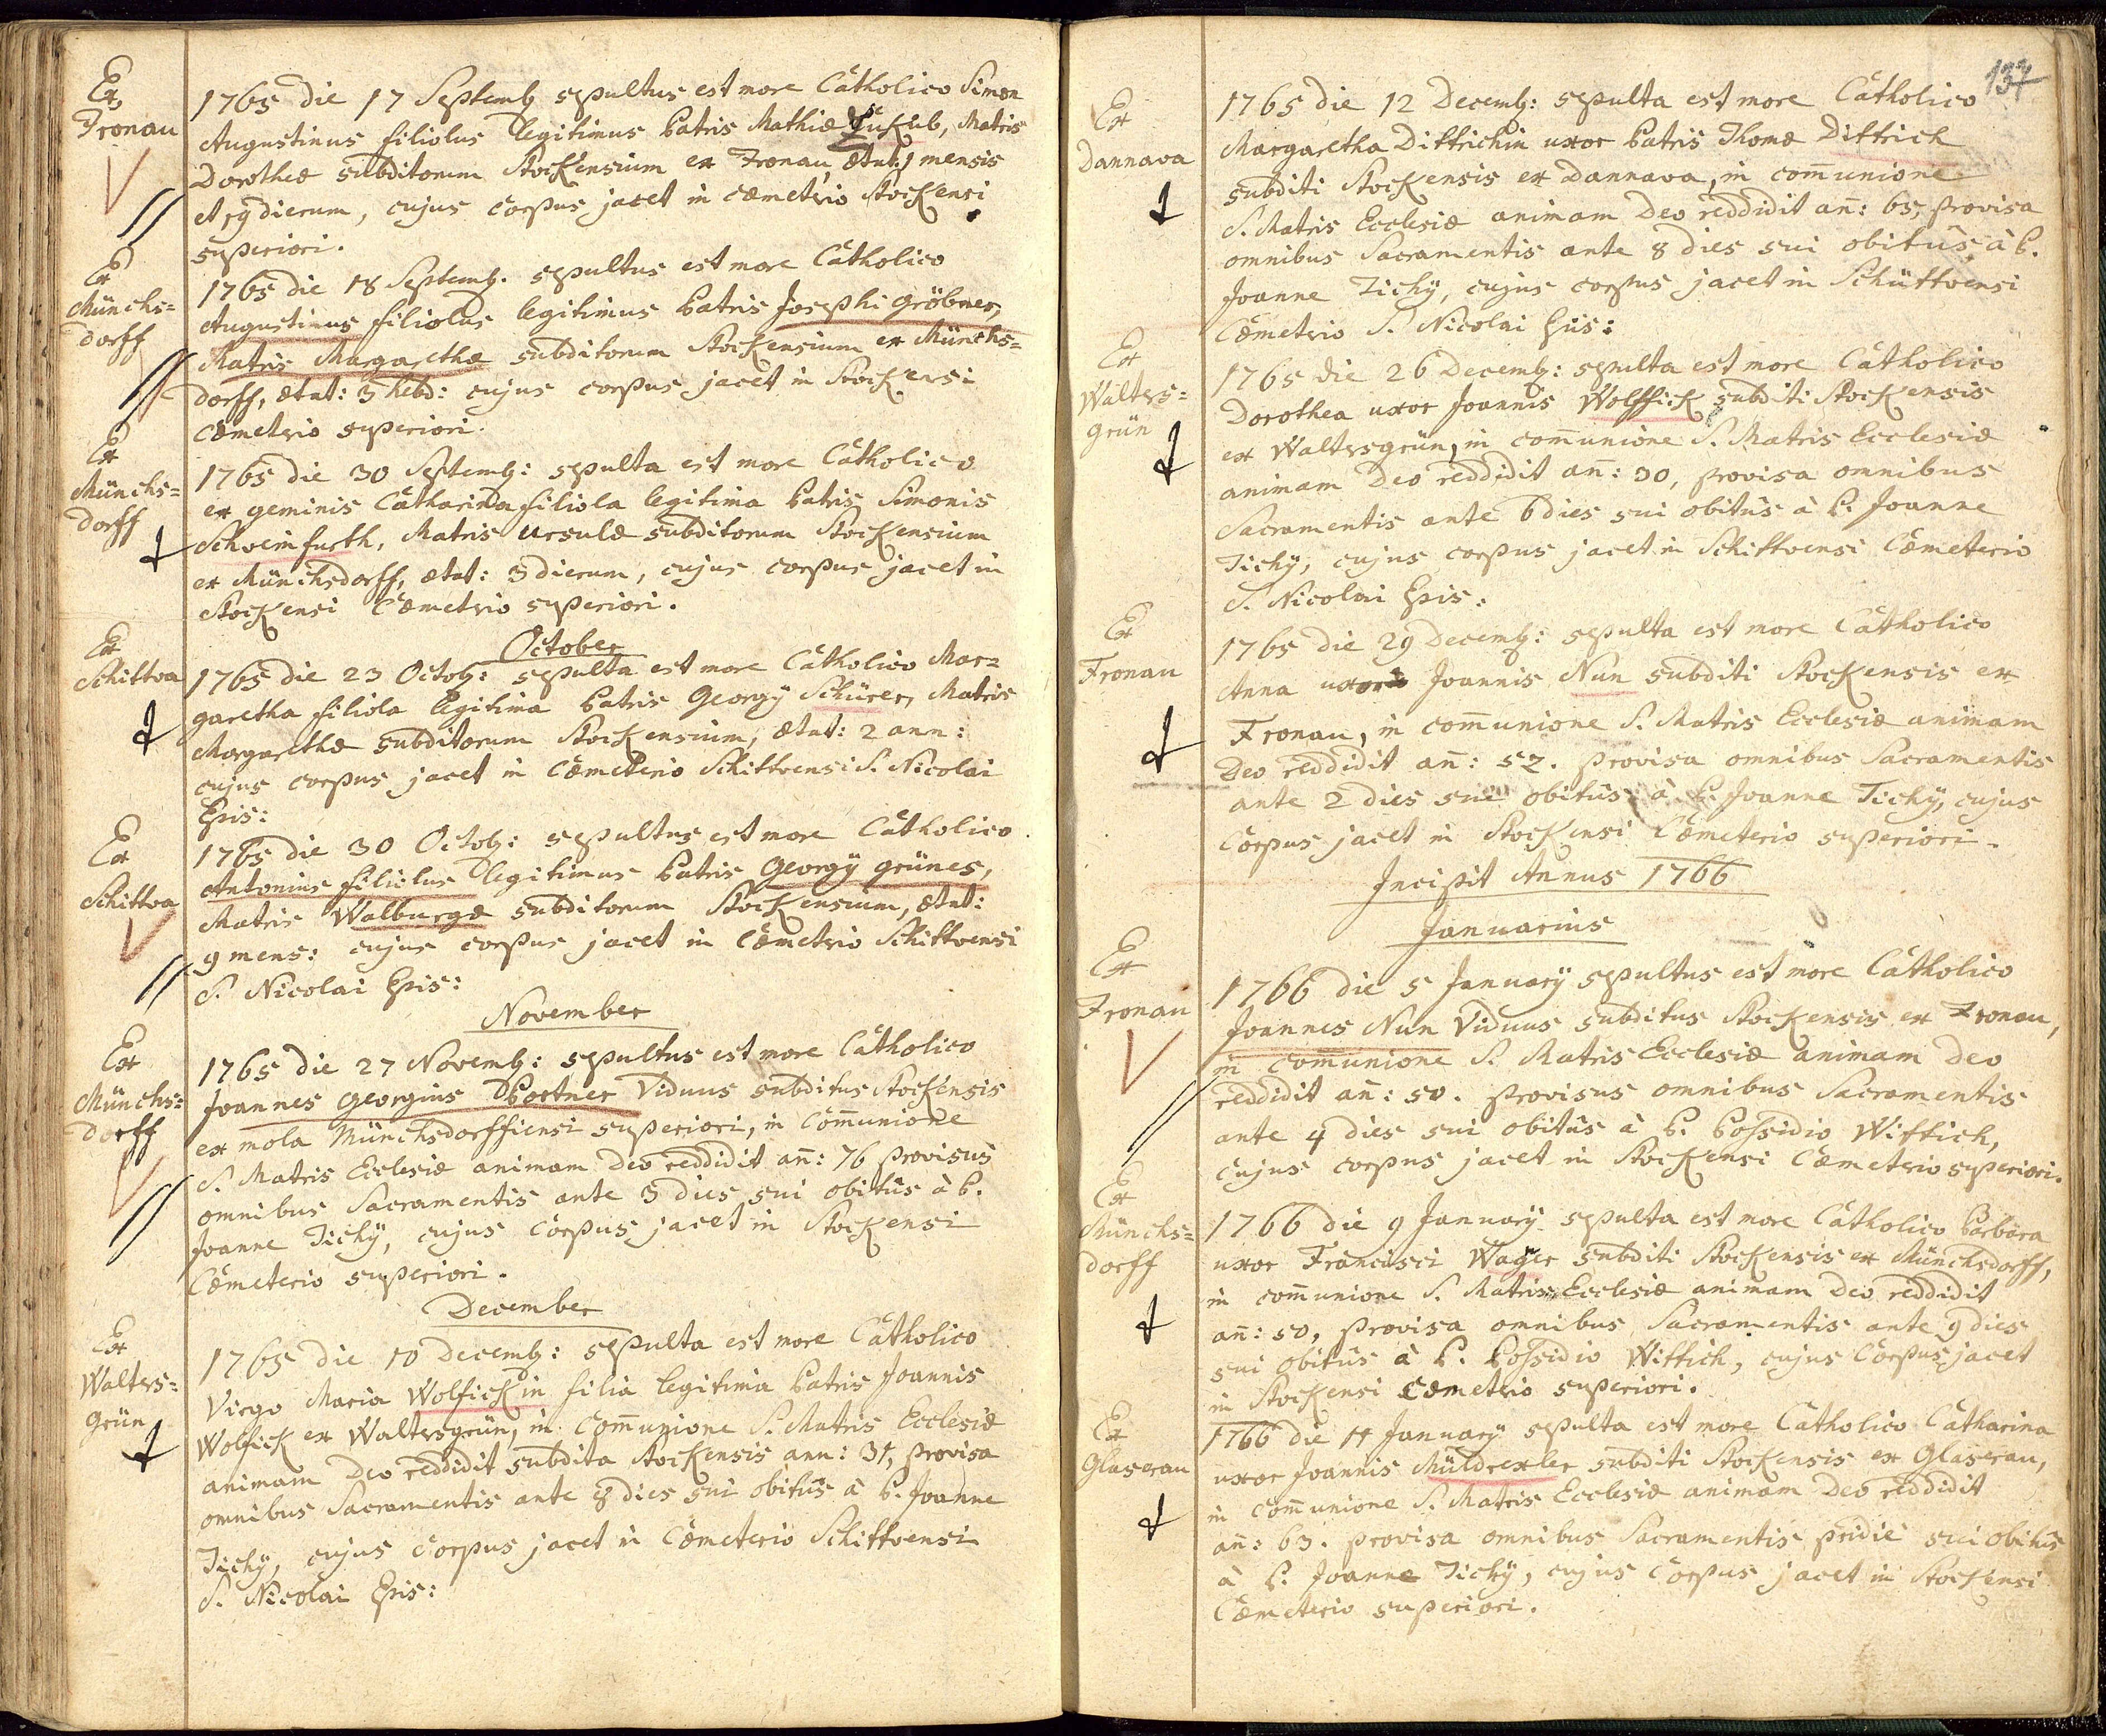 Ex
Fronau
1765 die 17 Septemb: sepultus est more Catholico Simon
Augustinus filiolus legitimus Patris Mathiæ Matris
Dorotheæ subditorum Stockensium ex Fronau, ætat: 1 mensis
et 19 dierum, cujus corpus jacet in cæmetrio Stockensi
superiori.
Ex
Münchs=
dorff
1765 die 18 Septemb. sepultus est more Catholico
Augustinus filiolus legitimus Patris Josephi Gröbner,
Matris Margarethæ subditorum Stockensium ex Münchs=
dorff, ætat: 3 hebd: cujus corpus jacet in Stockensi
cæmetrio superiori.
Ex
Münchs=
dorff
1765 die 30 Septemb: sepulta est more Catholico
ex geminis Catharina filiola legitima Patris Simonis
Schweinfurth, Matris Ursulæ subditorum Stockensium
ex Münchsdorff, ætat: 3 dierum, cujus corpus jacet in
Stockensi Cæmetrio superiori.
October
Ex
Schittwa
1765 die 23 Octob: sepulta est more Catholico Mar=
garetha filiola legitima Patris Georgÿ Schürer, Matris
Margarethæ subditorum Stockensium, ætat: 2 ann:
cujus corpus jacet in Cæmeterio Schittvensi S. Nicolai
Epis:
Ex
Schittva
1765 die 30 Octob: sepultus est more Catholico
Antonius filiolus legitimus Patris Georgÿ Grünes,
Matris Walburgæ subditorum Stockensium, ætat:
9 mens: cujus corpus jacet in Cæmetrio Schittvensi
S. Nicolai Epis:
November
Ex
Münchs=
dorff
1765 die 27 Novemb: sepultus est more Catholico
Joannes Georgius Portner Viduus subditus Stockensis
ex mola Münchsdorffiensi superiori, in Com̄unione
S. Matris Ecclesiæ animam Deo reddidit an̄: 76 provisus
omnibus Sacramentis ante 3 dies sui obitûs à P.
Joanne Tichÿ, cujus Corpus jacet in Stockensi
Cæmeterio superiori.
December
Ex
Walters=
grün
1765 die 10 Decemb: sepulta est more Catholico
Virgo Maria Wolfickin filia legitima Patris Joannis
Wolfick ex Waltersgrün, in Com̄unione S. Matris Ecclesiæ
animam Deo reddidit subdita Stockensis ann: 31, provisa
omnibus Sacramentis ante 8 dies sui obitûs à P. Joanne
Tichÿ, cujus Corpus jacet in Cæmeterio Schittvensi
S. Nicolai Epis:
137
Ex
Dannava
1765 die 12 Decemb: sepulta est more Catholico
Margaretha Dittrichin uxor Patris Thomæ Dittrich
subditi Stockensis ex Dannava, in com̄unione
S. Matris Ecclesiæ animam Deo reddidit an̄: 65, provisa
omnibus Sacramentis ante 8 dies sui obitûs, à P.
Joanne Tichÿ, cujus corpus jacet in Schüttvensi
Cæmetrio S. Nicolai Epis:
Ex
Walters=
grün
1765 die 26 Decemb: sepulta est more Catholico
Dorothea uxor Joannis Wolffick subditi Stockensis
ex Waltersgrün, in com̄unione S. Matris Ecclesiæ
animam Deo reddidit an̄: 30, provisa omnibus
Sacramentis ante 6 dies sui obitûs à P. Joanne
Tichÿ, cujus corpus jacet in Schittvensi Cæmeterio
S. Nicolai Epis:
Ex
Fronau
1765 die 29 Decemb: sepulta est more Catholico
Anna uxor Joannis Nun subditi Stockensis ex
Fronau, in com̄unione S. Matris Ecclesiæ animam
Deo reddidit an̄: 52. provisa omnibus Sacramentis
ante 2 dies sui obitûs à P. Joanne Tichÿ, cujus
Corpus jacet in Stockensi Cæmeterio superiori.
Incipit Annus 1766
Januarius
Ex
Fronau
1766 die 5 Januarÿ sepultus est more Catholico
Joannes Nun Viduus subditus Stockensis ex Fronau,
in com̄unione S. Matris Ecclesiæ animam Deo
reddidit an̄: 50. provisus omnibus Sacramentis
ante 4 dies sui obitûs à P. Possidio Wittich,
cujus corpus jacet in Stockensi Cæmetrio superiori.
Ex
Münchs=
dorff
1766 die 9 Januarÿ sepulta est more Catholico Barbara
uxor Francisci Wager subditi Stockensis ex Münchsdorff,
in com̄unione S. Matris Ecclesiæ animam Deo reddidit
an̄: 50, provisa omnibus Sacramentis ante 9 dies
sui obitûs à P. Possidio Wittich, cujus Corpus jacet
in Stockensi Cæmetrio superiori.
Ex
Glaserau
1766 die 11 Januarÿ sepulta est more Catholico Catharina
uxor Joannis Müldrexler subditi Stockensis ex Glaserau,
in Com̄unione S. Matris Ecclesiæ animam Deo reddidit
an̄: 63. provisa omnibus Sacramentis pridie sui obitûs
à P. Joanne Tichÿ, cujus Corpus jacet in Stockensi
Cæmeterio superiori.